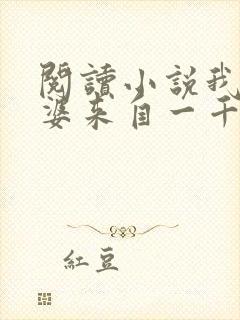 閱讀小說我
婆来自一千
紅豆